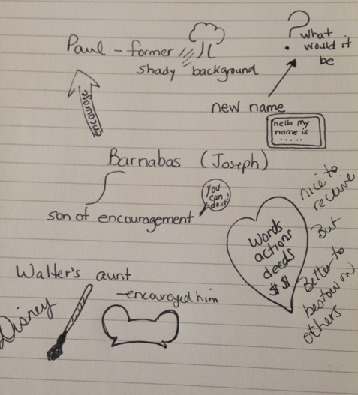 Paul - former
shady background
?
what
would it
be
encourage
new name
hello my
name is
.....
Barnabas (Joseph)
You
can
do it!
son of encouragement
nice to
receive
But
Better to
bestow on
others
Words
actions
deeds
$$
Walter's aunt
-encouraged him
Disney